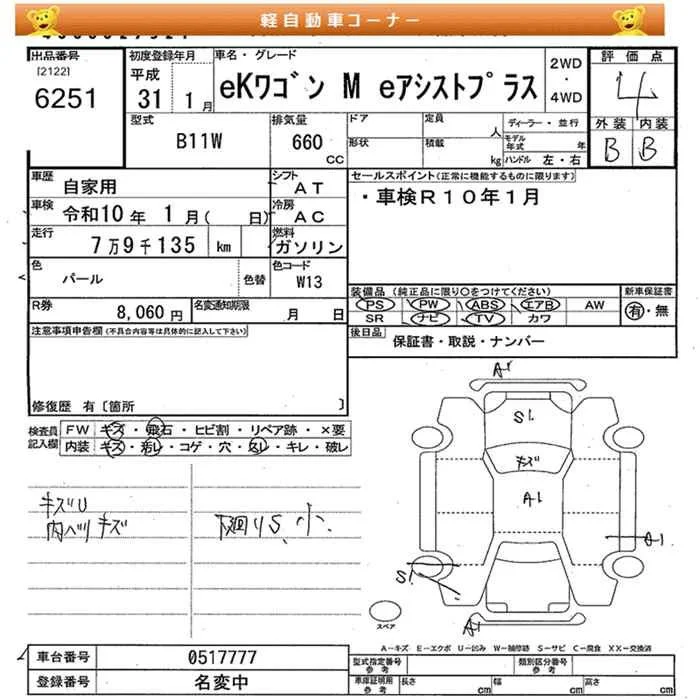 軽自動車コーナー
出品番号
[2122]
6251
初度登録年月
平成
31 1月
車名・グレード
eKワゴン M eアシストプラス
2WD
・
4WD
評価点
4
外装 内装
B B
型式
B11W
排気量
660
CC
ドア
形状
定員
人
積載
kg
ディーラー・並行
モデル年式
年
ハンドル 左・右
車歴
自家用
シフト
AT
車検
令和10年 1月( 日)
冷房
AC
走行
7万9千135 km
燃料
ガソリン
色
パール
色替
色コード
W13
R券
8,060円
名変通知期限
月 日
セールスポイント(正常に機能するものに限ります)
・車検R10年1月
装備品(純正品に限り○をつけてください)
PS PW ABS エアB AW
SR ナビ TV カワ
新車保証書
有・無
後日品
保証書・取説・ナンバー
注意事項申告欄(不具合内容等は具体的に記入して下さい)
修復歴 有〔箇所 〕
検査員
記入欄
FW キズ・飛石・ヒビ割・リペア跡・×要
内装 キズ・汚レ・コゲ・穴・スレ・キレ・破レ
キズU
内ヘリキズ
下廻りS、小
A1
S1
キズ
A1
A1
S1
A1
スペア
A−キズ E−エクボ U−凹み W−補修跡 S−サビ C−腐食 XX−交換済
車台番号
0517777
登録番号
名変中
型式指定番号
参考
類別区分番号
参考
車庫証明用
参考
長さ cm
幅 cm
高さ cm